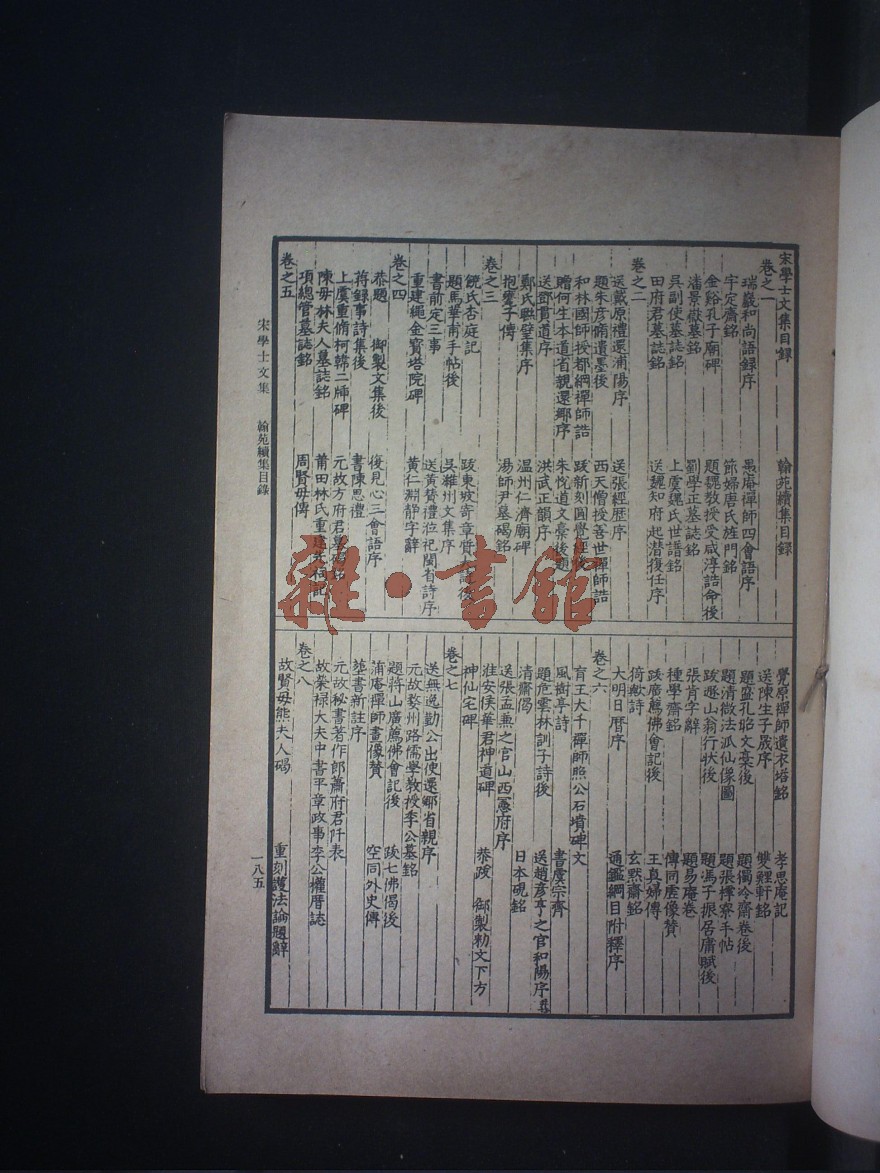 宋學士文集目録　翰苑續集目録
卷之一
瑞巖和尚語録序　愚庵禪師四會語序
宇定齋銘　節婦唐氏旌門銘
金谿孔子廟碑　題魏教授受咸淳誥命後
潘景嶽墓銘　劉學正墓誌銘
吳副使墓誌銘　上虞魏氏世譜銘
田府君墓誌銘　送魏知府起潛復任序
卷之二
送戴原禮還浦陽序　送張經歷序
題朱彦脩遺墨後　西天僧授善世禪師誥
和林國師授都綱禪師誥　跋新刻圓覺經後
贈何生本道省親還鄉序　朱悅道文藁後題
送鄧貫道序　洪武正韻序
鄭氏聯璧集序　温州仁濟廟碑
抱甕子傳　湯師尹墓碣銘
卷之三
饒氏杏庭記　跋東坡寄章質夫詩後
題馬華甫手帖後　吳濰州文集序
書前定三事　送黄贊禮涖祀閩省詩序
重建繩金寳塔院碑　黄仁淵静字辭
卷之四
恭題　御製文集後　復見心三會語序
蒋録事詩集後　書陳思禮
上虞重脩柯韓二牐碑　元故方府君墓碣銘
陳毋林夫人墓誌銘　莆田林氏重建先祠記
項總管墓誌銘　周賢毋傳
卷之五
覺原禪師遺衣塔銘　孝思庵記
送陳生子晟序　雙鯉軒銘
題盤孔昭文藁後　題獨冷齋卷後
題清微法派仙像圖　題張樗寮手帖
跋遯山翁行狀後　題馮子振居庸賦後
張肯字辭　題易庵卷
種學齋銘　傳同虚像賛
跋廣薦佛會記後　王貞婦傳
猗歟詩　玄默齋銘
大明日曆序　通鑑綱目附釋序
卷之六
育王大千禪師照公石墳碑文
風樹亭詩　書虞宗齊
題危雲林訓子詩後　送趙彦亨之官和陽序
清齋偈　日本硯銘
送張孟兼之官山西憲府序
淮安侯華君神道碑　恭跋　御製勑文下方
神仙宅碑
卷之七
送無逸勤公出使還鄉省親序
元故婺州路儒學教授李公墓銘
題蒋山廣薦佛會記後　跋七佛偈後
浦庵禪師畫像賛　空同外史傳
葬書新註序
元故秘書著作郎蕭府君阡表
故榮禄大夫中書平章政事李公權厝誌
卷之八
故賢毋熊夫人碣　重刻護法論題辭
宋學士文集　翰苑續集目錄
一八五
雜·書館